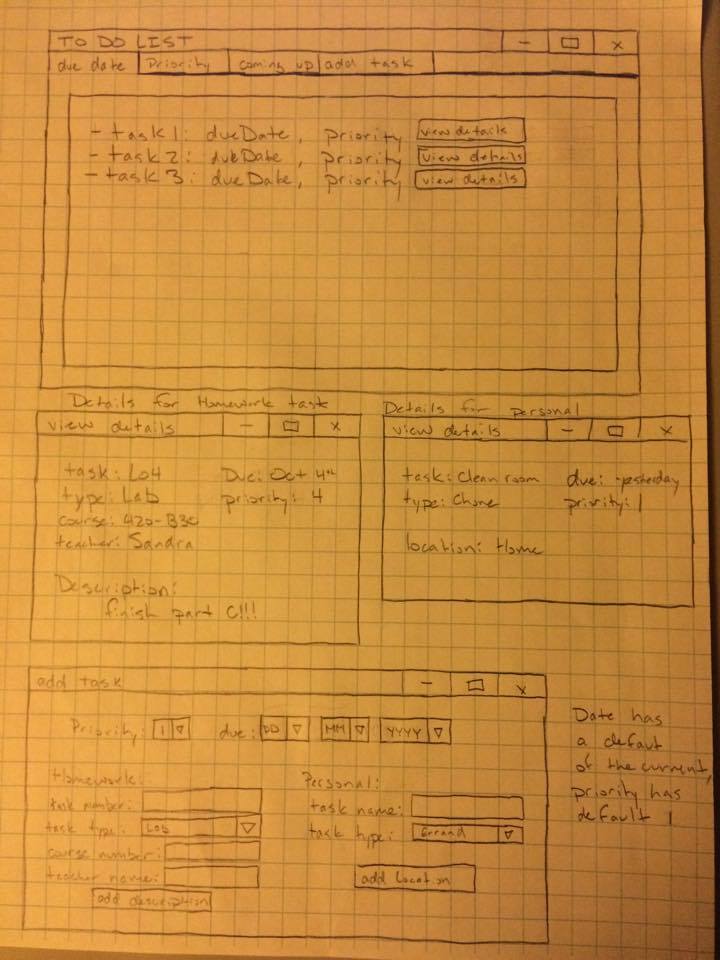 TO DO LIST - x
due date Priority coming up add task
- task 1: dueDate, priority view details
- task 2: dueDate, priority view details
- task 3: dueDate, priority view details
Details for Homework task
view details - x
task: L04 Due: Oct 4th
type: Lab priority: 4
course: 420-B30
teacher: Sandra
Description:
finish part C!!!
Details for personal
view details - x
task: Clean room due: yesterday
type: Chore priority: 1
location: Home
add task - x
Priority: 1 due: DD MM YYYY
Homework:
task number:
task type: Lab
course number:
teacher name:
add description
Personal:
task name:
task type: Errand
add location
Date has
a defaut
of the current,
priority has
default 1